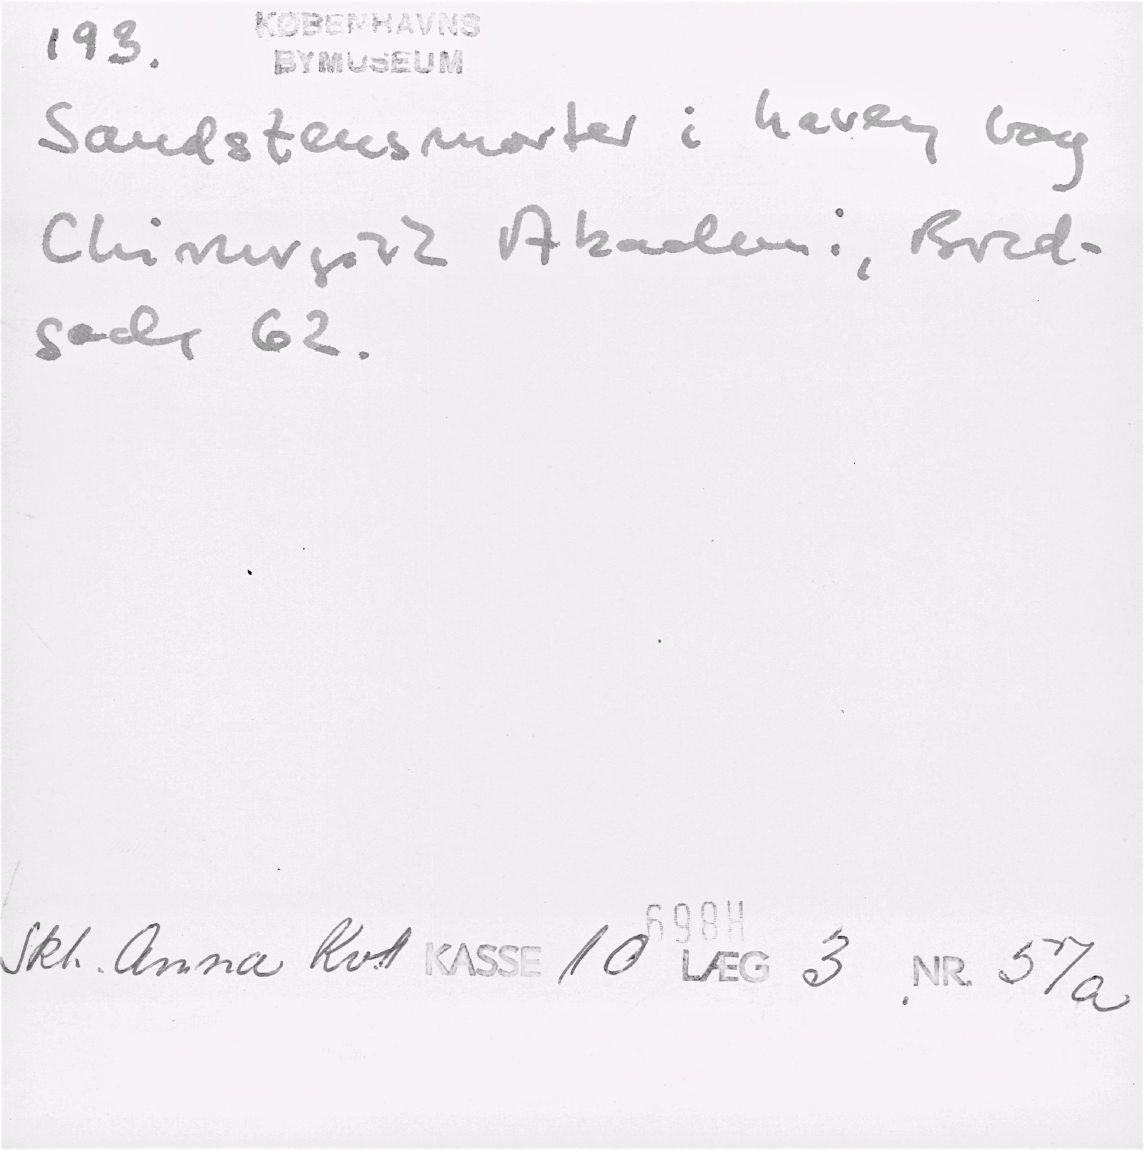 193.
KØBENHAVNS
BYMUSEUM
Sandstensmorter i haven bag
Chirurgisk Akademi, Bred-
gade 62.
698H
Skt. Anna Kvt KASSE 10 LÆG 3 NR. 57/a